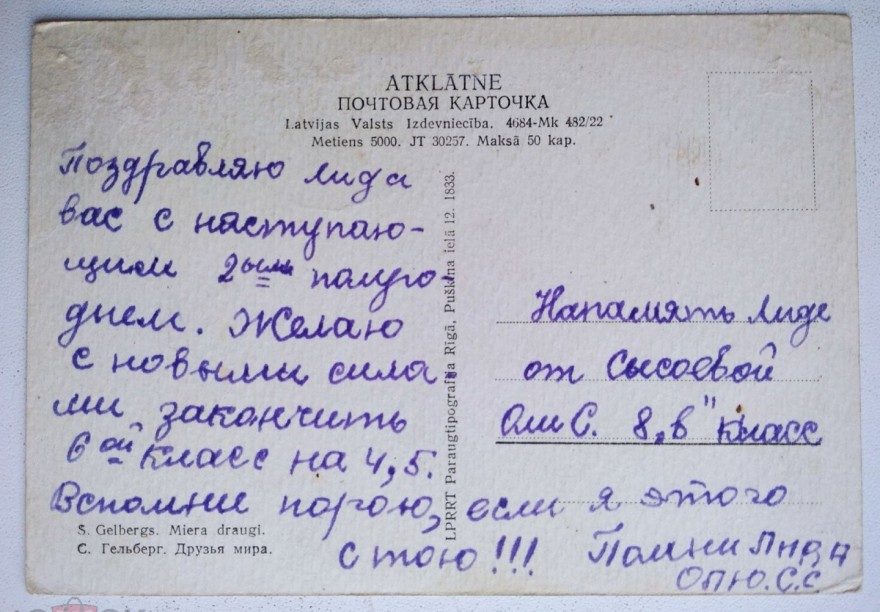 ATKLĀTNE
ПОЧТОВАЯ КАРТОЧКА
Latvijas Valsts Izdevniecība. 4684-Mk 482/22
Metiens 5000. JT 30257. Maksā 50 kap.
Поздравляю Лида
вас с наступаю-
щим 2ым полуго-
днем. Желаю
с новыми сила
ми закончить
6ой класс на 4,5.
Вспомни порою, если я этого
стою!!!
LPRRT Paraugtipografija Rīgā, Puškina ielā 12. 1833.
Напамять Лиде
от Сысоевой
Оли С. 8 „в" класс
Помни Лида
Олю.С.С
S. Gelbergs. Miera draugi.
С. Гельберг. Друзья мира.